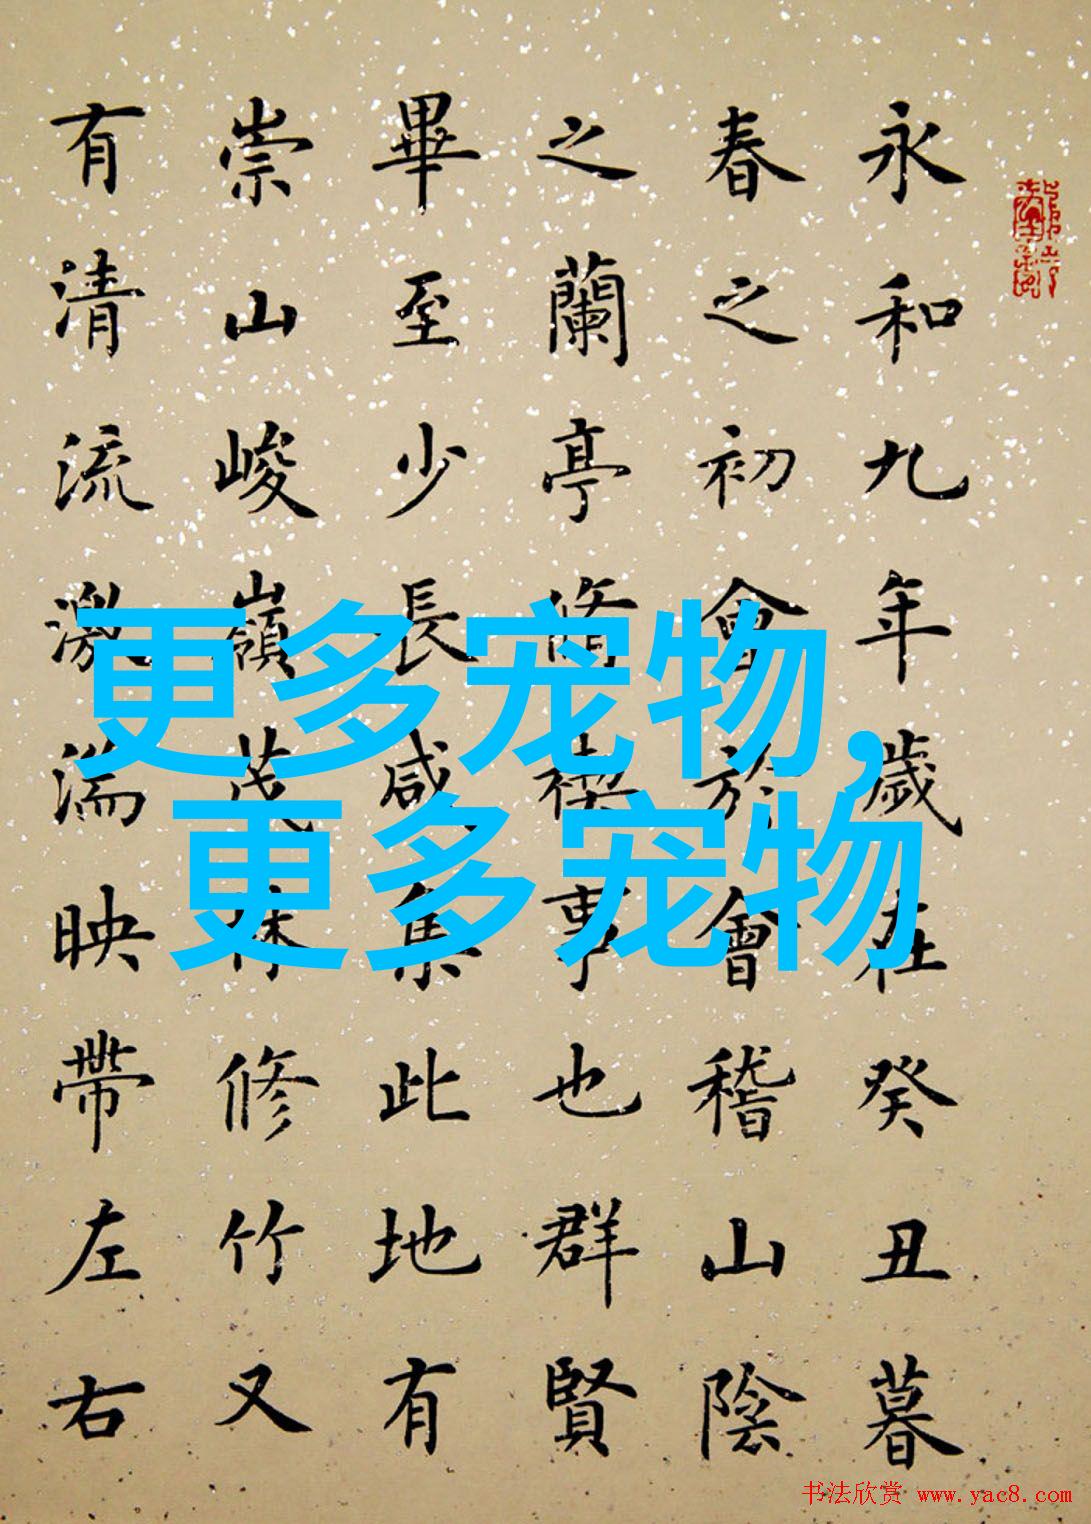 永和九年歲在癸丑暮
春之初會於會稽山陰
之蘭亭脩禊事也群賢
畢至少長咸集此地有
崇山峻嶺茂林修竹又
有清流激湍映帶左右
更多宠物,
更多宠物
书法欣赏 www.yac8.com